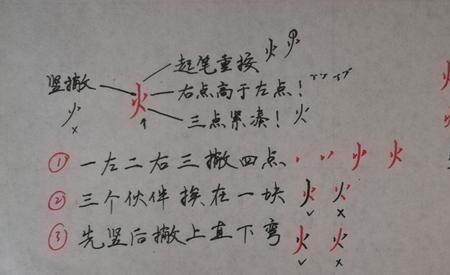 起笔重按 火 火
竖撇 火 右点高于左点!
火 三点紧凑! 火
① 一左二右三撇四点 火 火
② 三个伙伴挨在一块 火 火
③ 先竖后撇上直下弯 火 火